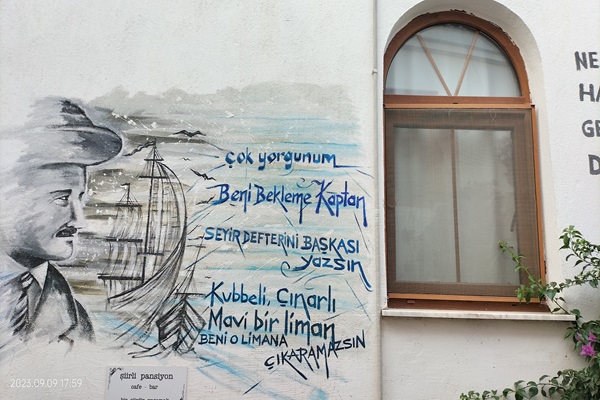 çok yorgunum
Beni Bekleme Kaptan
SEYİR DEFTERİNİ BAŞKASI
yazsın
Kubbeli, Çınarlı
Mavi bir liman
BENİ O LİMANA
ÇIKARAMAZSIN
NE
HA
GE
D
şiirli pansiyon
cafe - bar
2023.09.09 17:59